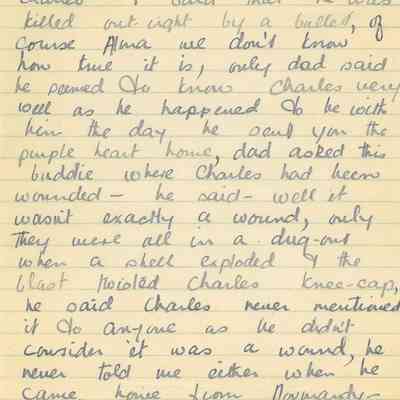 killed out right by a bullet, of
course Alma we don't know
how true it is, only dad said
he seemed to know Charles very
well as he happened to be with
him the day he sent you the
purple heart home, dad asked this
buddie where Charles had been
wounded – he said – well it
wasn't exactly a wound, only
they were all in a dug-out
when a shell exploded & the
blast twisted Charles knee-cap,
he said Charles never mentioned
it to anyone as he didn't
consider it was a wound, he
never told me either when he
came home from Normandy –